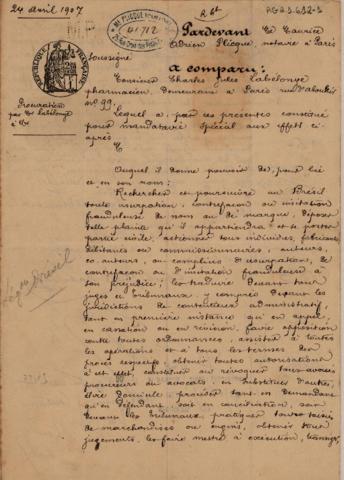 24 avril 1907
Pardevant Me Maurice
Adrien Plicque, notaire à Paris
soussigné
A comparu:
Monsieur Charles Jules Labelonye
pharmacien, demeurant à Paris rue d'Aboukir
no 99.
Procuration
par M. Labelonye
à M
Lequel a, par ces présentes constitué
pour mandataire spécial aux effets ci-
après
M
Auquel il donne pouvoir de, pour lui
et en son nom:
Rechercher et poursuivre au Brésil
toute usurpation, contrefaçon ou imitation
frauduleuse de nom ou de marque, déposer
telle plainte qu'il appartiendra et se porter
partie civile, actionner tous individus, fabricants
débitants ou commissionnaires, auteurs,
co-auteurs, ou complices d'usurpation, de
contrefaçon ou d'imitation frauduleuse à
son préjudice; les traduire devant tous
juges et tribunaux y compris devant les
juridictions du contentieux administratif,
tant en première instance qu'en appel,
en cassation ou en révision, faire opposition
contre toutes ordonnances, assister à toutes
les opérations et à tous les termes des
procès respectifs, obtenir toutes autorisations
à cet effet, constituer ou révoquer tous avoués
procureurs ou avocats, en substituer d'autres,
élire domicile, procéder tant en demandant
qu'en défendant, soit en conciliation, soit
devant les tribunaux, pratiquer toutes saisies
de marchandises ou engins, obtenir tout
jugements, les faire mettre à exécution,